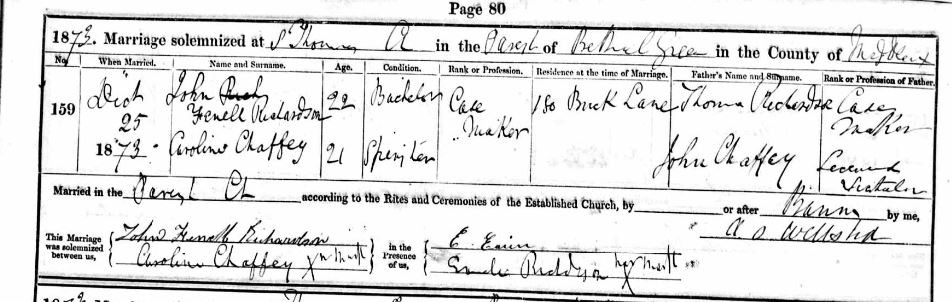 Page 80
1873. Marriage solemnized at St Thomas Ch in the Parish of Bethnal Green in the County of Middlesex
No. When Married. Name and Surname. Age. Condition. Rank or Profession. Residence at the time of Marriage. Father's Name and Surname. Rank or Profession of Father.
159 Dec 25 1873. John Fenell Richardson 22 Bachelor Case Maker 180 Brick Lane Thomas Richardson Case Maker
Caroline Chaffey 21 Spinster John Chaffey Licensed
Married in the Parish Ch according to the Rites and Ceremonies of the Established Church, by or after Banns by me,
This Marriage was solemnized between us, John Fenell Richardson in the Presence of us, E.
Caroline Chaffey X her Mark her X mark